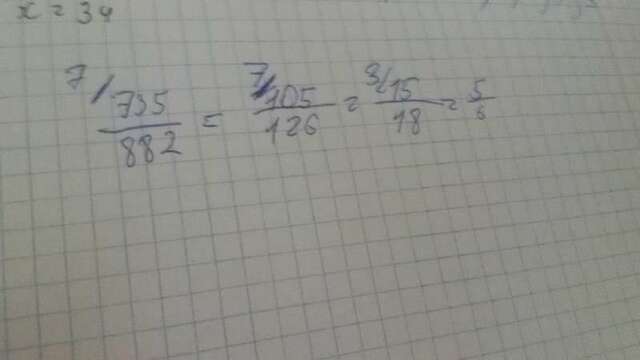 x = 34
7/ 735/882 = 7/ 105/126 = 3/ 15/18 = 5/6